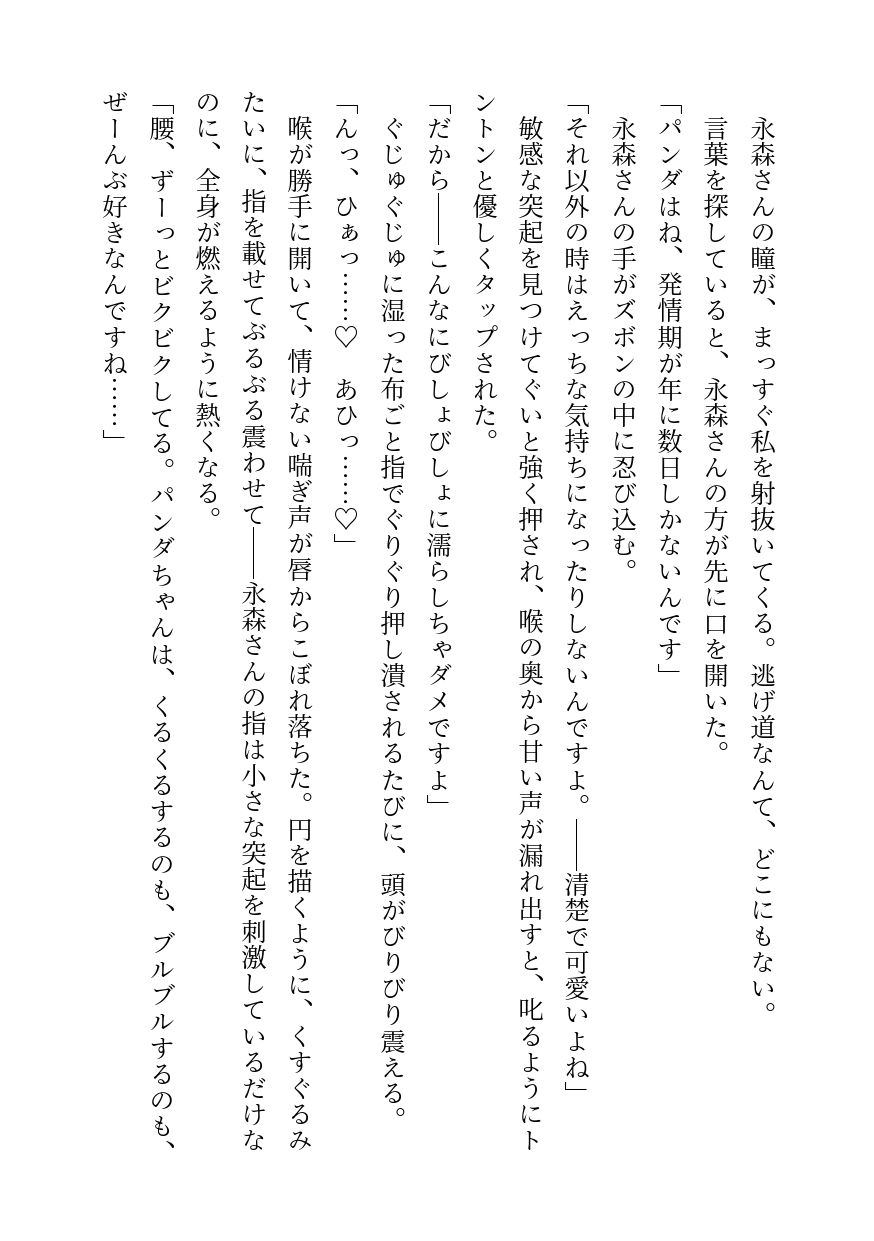 永森さんの瞳が、まっすぐ私を射抜いてくる。逃げ道なんて、どこにもない。
言葉を探していると、永森さんの方が先に口を開いた。
「パンダはね、発情期が年に数日しかないんです」
永森さんの手がズボンの中に忍び込む。
「それ以外の時はえっちな気持ちになったりしないんですよ。――清楚で可愛いよね」
敏感な突起を見つけてぐいと強く押され、喉の奥から甘い声が漏れ出すと、叱るようにト
ントンと優しくタップされた。
「だから――こんなにびしょびしょに濡らしちゃダメですよ」
ぐじゅぐじゅに湿った布ごと指でぐりぐり押し潰されるたびに、頭がびりびり震える。
「んっ、ひぁっ……♡　あひっ……♡」
喉が勝手に開いて、情けない喘ぎ声が唇からこぼれ落ちた。円を描くように、くすぐるみ
たいに、指を載せてぶるぶる震わせて――永森さんの指は小さな突起を刺激しているだけな
のに、全身が燃えるように熱くなる。
「腰、ずーっとビクビクしてる。パンダちゃんは、くるくるするのも、ブルブルするのも、
ぜーんぶ好きなんですね……」